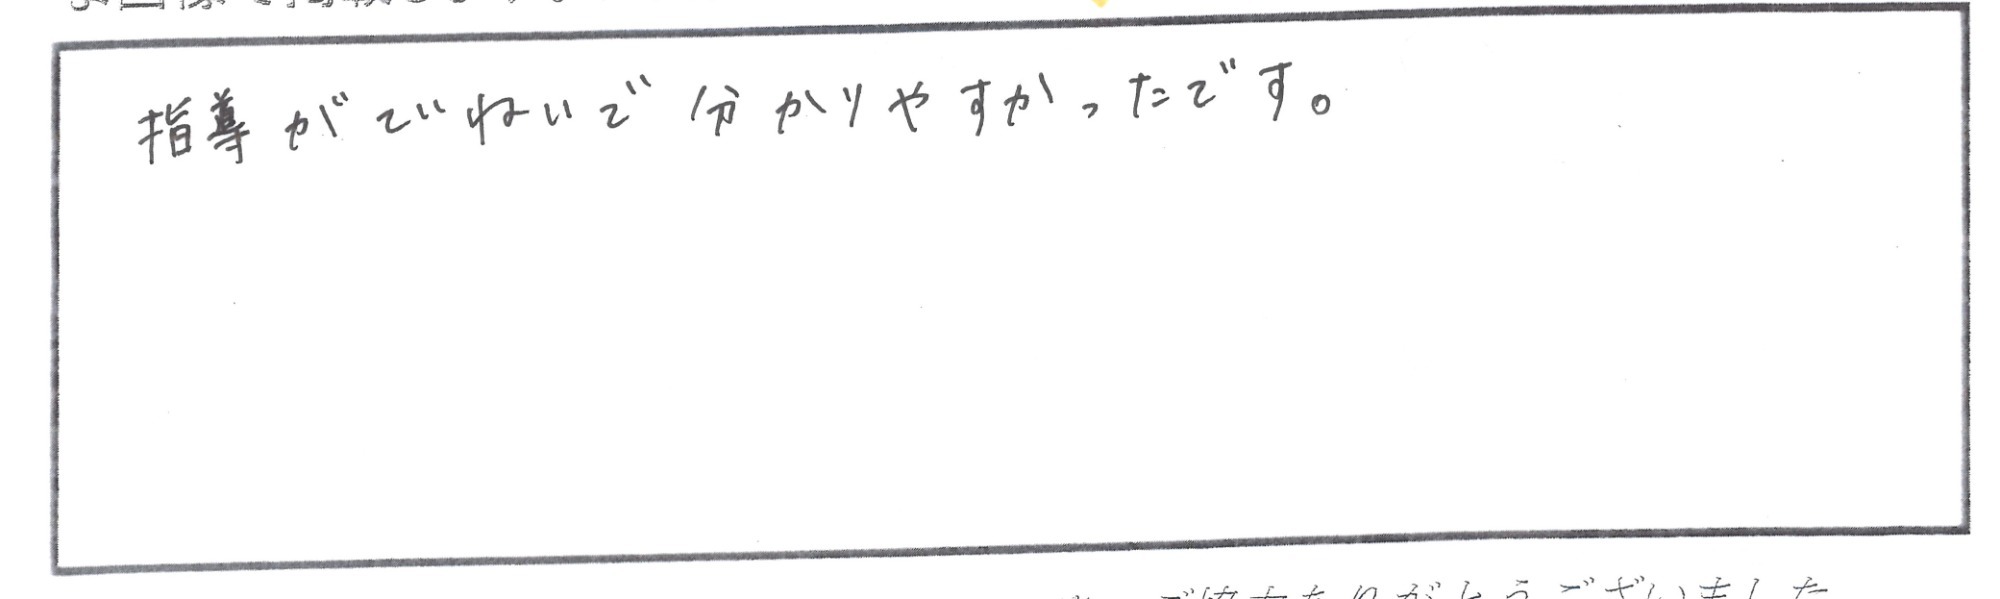 指導がていねいで分かりやすかったです。
ご協力ありがとうございました